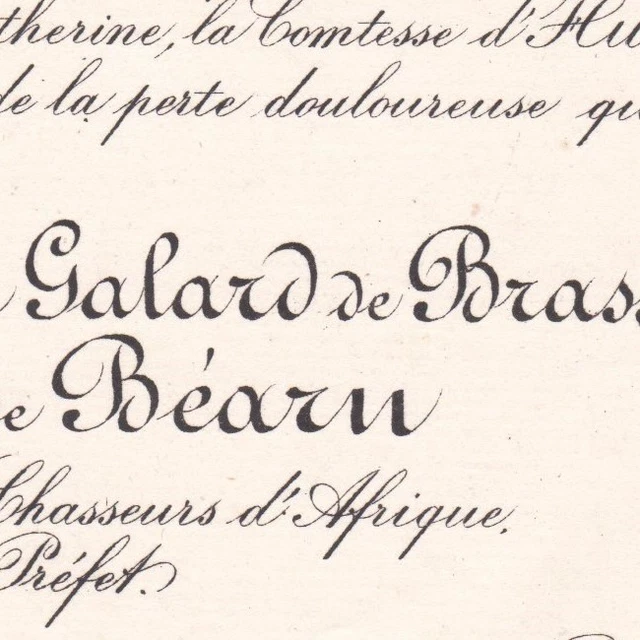 therine, la Comtesse d'Hu
de la perte douloureuse qu
Galard de Brass
e Béarn
Chasseurs d'Afrique,
Préfet.